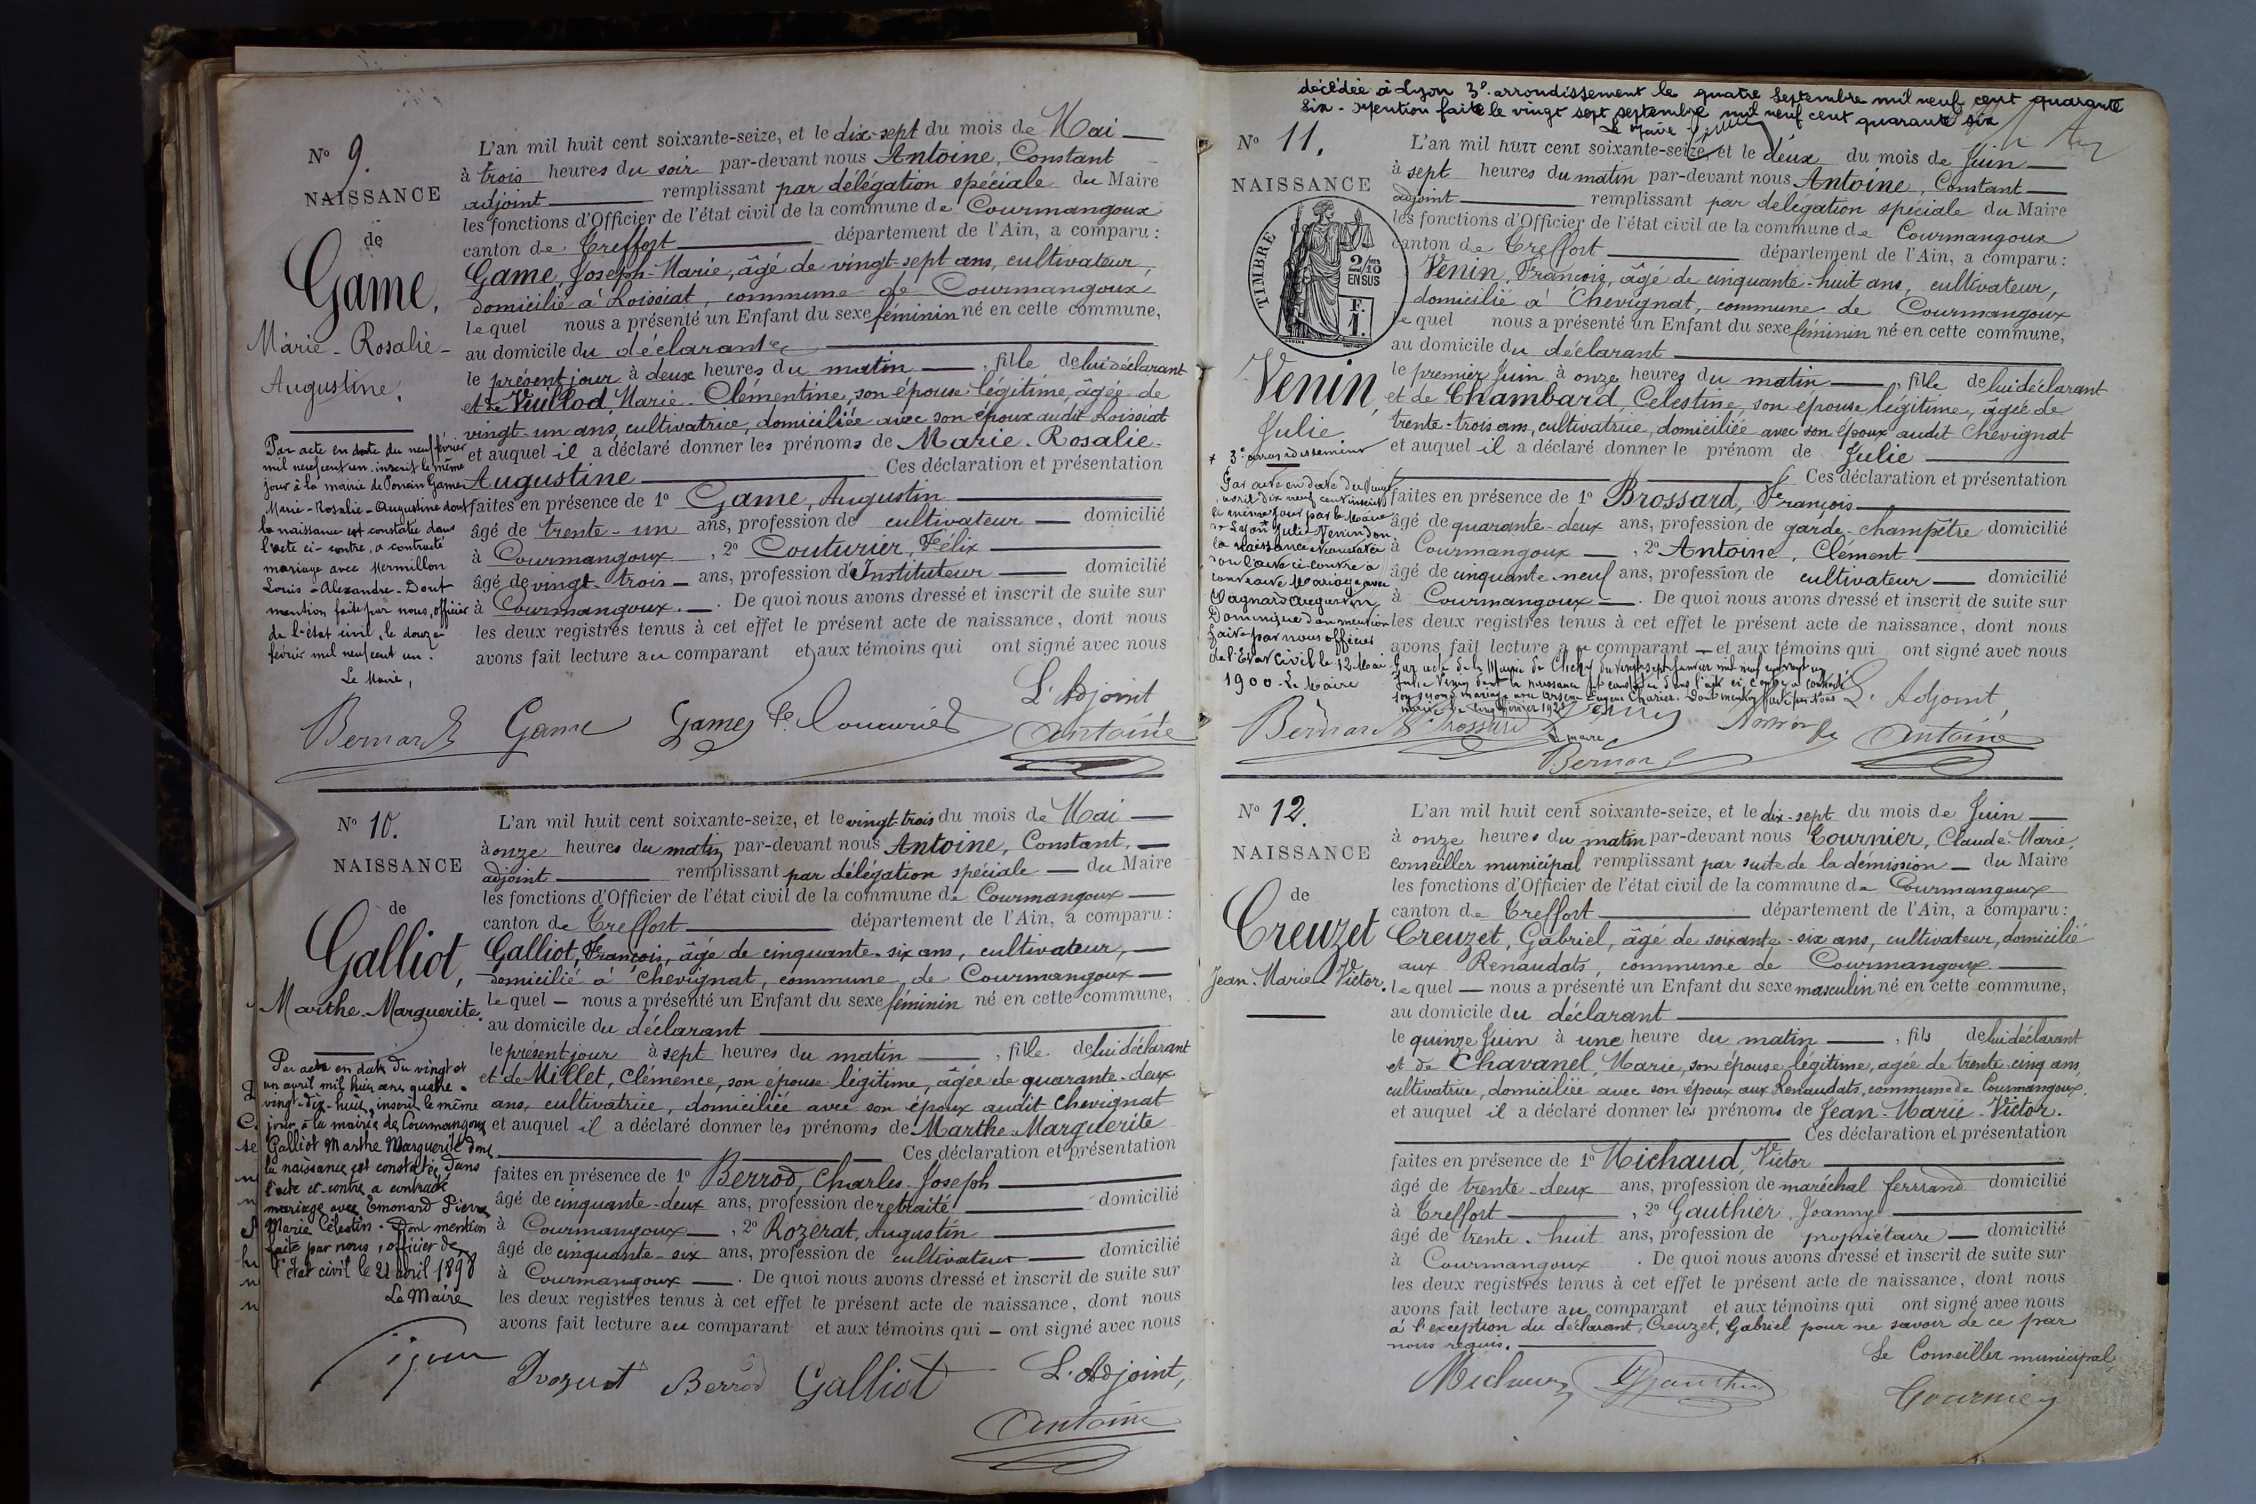 N° 9.
NAISSANCE
de
Game,
Marie-Rosalie-
Augustine.
Par acte en date du neuf février
mil neuf cent un inscrit le même
jour à la mairie de Poncin Game
Marie-Rosalie-Augustine dont
la naissance est constatée dans
l'acte ci-contre, a contracté
mariage avec Mermillon
Louis-Alexandre-Dont
mention faite par nous, officier
de l'état civil, le douze
février mil neuf cent un.
Le Maire,
L'an mil huit cent soixante-seize, et le dix-sept du mois de Mai
à trois heures du soir par-devant nous Antoine, Constant
adjoint remplissant par délégation spéciale du Maire
les fonctions d'Officier de l'état civil de la commune de Courmangoux
canton de Treffort département de l'Ain, a comparu :
Game, Joseph-Marie, âgé de vingt-sept ans, cultivateur,
domicilié à Roissiat, commune de Courmangoux
lequel nous a présenté un Enfant du sexe féminin né en cette commune,
au domicile du déclarant
le présent jour à deux heures du matin, fille de lui déclarant
et de Vuillod, Marie-Clémentine, son épouse légitime, âgée de
vingt-un ans, cultivatrice, domiciliée avec son époux audit Roissiat
et auquel il a déclaré donner les prénoms de Marie-Rosalie-
Augustine Ces déclaration et présentation
faites en présence de 1° Game, Augustin
âgé de trente-un ans, profession de cultivateur domicilié
à Courmangoux, 2° Couturier, Félix
âgé de vingt-trois ans, profession d'Instituteur domicilié
à Courmangoux. De quoi nous avons dressé et inscrit de suite sur
les deux registres tenus à cet effet le présent acte de naissance, dont nous
avons fait lecture au comparant et aux témoins qui ont signé avec nous
L'Adjoint
Bernard Game Game F. Couturier Antoine
N° 10.
NAISSANCE
de
Galliot,
Marthe-Marguerite.
Par acte en date du vingt et
un avril mil huit cent quatre-
vingt-dix-huit, inscrit le même
jour à la mairie de Courmangoux
Galliot Marthe Marguerite dont
la naissance est constatée dans
l'acte ci-contre a contracté
mariage avec Emonard Pierre
Marie Célestin. Dont mention
faite par nous, officier de
l'état civil le 21 avril 1898
Le Maire
L'an mil huit cent soixante-seize, et le vingt-trois du mois de Mai
à onze heures du matin par-devant nous Antoine, Constant,
adjoint remplissant par délégation spéciale du Maire
les fonctions d'Officier de l'état civil de la commune de Courmangoux
canton de Treffort département de l'Ain, a comparu :
Galliot, François, âgé de cinquante-six ans, cultivateur,
domicilié à Chevignat, commune de Courmangoux
lequel nous a présenté un Enfant du sexe féminin né en cette commune,
au domicile du déclarant
le présent jour à sept heures du matin, fille de lui déclarant
et de Millet, Clémence, son épouse légitime, âgée de quarante-deux
ans, cultivatrice, domiciliée avec son époux audit Chevignat
et auquel il a déclaré donner les prénoms de Marthe-Marguerite
Ces déclaration et présentation
faites en présence de 1° Berrod, Charles-Joseph
âgé de cinquante-deux ans, profession de retraité domicilié
à Courmangoux, 2° Rozerat, Augustin
âgé de cinquante-six ans, profession de cultivateur domicilié
à Courmangoux. De quoi nous avons dressé et inscrit de suite sur
les deux registres tenus à cet effet le présent acte de naissance, dont nous
avons fait lecture au comparant et aux témoins qui ont signé avec nous
L'Adjoint,
Berrod Galliot
Antoine
décédée à Lyon 3e arrondissement le quatre Septembre mil neuf cent quarante
six - Mention faite le vingt sept septembre mil neuf cent quarante six
Le Maire
N° 11.
NAISSANCE
TIMBRE
2/10 EN SUS
F. 1.
Venin,
Julie
+ 3e arrondissement
Par acte en date du vingt
avril dix neuf cent inscrit
le même jour par le Maire
de Lyon+ Julie Venin dont
la naissance est constatée
dans l'acte ci contre a
contracté Mariage avec
Vagnard Augustin
Dominique dont mention
faite par nous officier
de l'Etat Civil le 12 Mai
1900 - Le Maire
L'an mil huit cent soixante-seize, et le deux du mois de Juin
à sept heures du matin par-devant nous Antoine, Constant
adjoint remplissant par délégation spéciale du Maire
les fonctions d'Officier de l'état civil de la commune de Courmangoux
canton de Treffort département de l'Ain, a comparu :
Venin, François, âgé de cinquante-huit ans, cultivateur,
domicilié à Chevignat, commune de Courmangoux
lequel nous a présenté un Enfant du sexe féminin né en cette commune,
au domicile du déclarant
le premier Juin à onze heures du matin, fille de lui déclarant
et de Chambard, Célestine, son épouse légitime, âgée de
trente-trois ans, cultivatrice, domiciliée avec son époux audit Chevignat
et auquel il a déclaré donner le prénom de Julie
Ces déclaration et présentation
faites en présence de 1° Brossard, François
âgé de quarante-deux ans, profession de garde-champêtre domicilié
à Courmangoux, 2° Antoine, Clément
âgé de cinquante-neuf ans, profession de cultivateur domicilié
à Courmangoux. De quoi nous avons dressé et inscrit de suite sur
les deux registres tenus à cet effet le présent acte de naissance, dont nous
avons fait lecture au comparant et aux témoins qui ont signé avec nous
Par acte de la Mairie de du vingt sept janvier mil neuf cent vingt un
Julie Venin dont la naissance est constatée dans l'acte ci contre a contracté
son second mariage avec Arsène Eugène Charier. Dont mention faite par nous
Maire le cinq février 1921
L'Adjoint,
Bernard Brossard Venin Antoine
Le maire
Bernard
N° 12.
NAISSANCE
de
Creuzet
Jean-Marie-Victor.
L'an mil huit cent soixante-seize, et le dix-sept du mois de Juin
à onze heures du matin par-devant nous Tournier, Claude-Marie,
conseiller municipal remplissant par suite de la démission du Maire
les fonctions d'Officier de l'état civil de la commune de Courmangoux
canton de Treffort département de l'Ain, a comparu :
Creuzet, Gabriel, âgé de soixante-six ans, cultivateur, domicilié
aux Renaudats, commune de Courmangoux
lequel nous a présenté un Enfant du sexe masculin né en cette commune,
au domicile du déclarant
le quinze Juin à une heure du matin, fils de lui déclarant
et de Chavanel, Marie, son épouse légitime, âgée de trente-cinq ans,
cultivatrice, domiciliée avec son époux aux Renaudats, commune de Courmangoux.
et auquel il a déclaré donner les prénoms de Jean-Marie-Victor.
Ces déclaration et présentation
faites en présence de 1° Michaud, Victor
âgé de trente-deux ans, profession de maréchal ferrand domicilié
à Treffort, 2° Gauthier, Joanny
âgé de trente-huit ans, profession de propriétaire domicilié
à Courmangoux. De quoi nous avons dressé et inscrit de suite sur
les deux registres tenus à cet effet le présent acte de naissance, dont nous
avons fait lecture au comparant et aux témoins qui ont signé avec nous
à l'exception du déclarant, Creuzet, Gabriel pour ne savoir de ce par
nous requis.
Le Conseiller municipal,
Michaud Gauthier Tournier